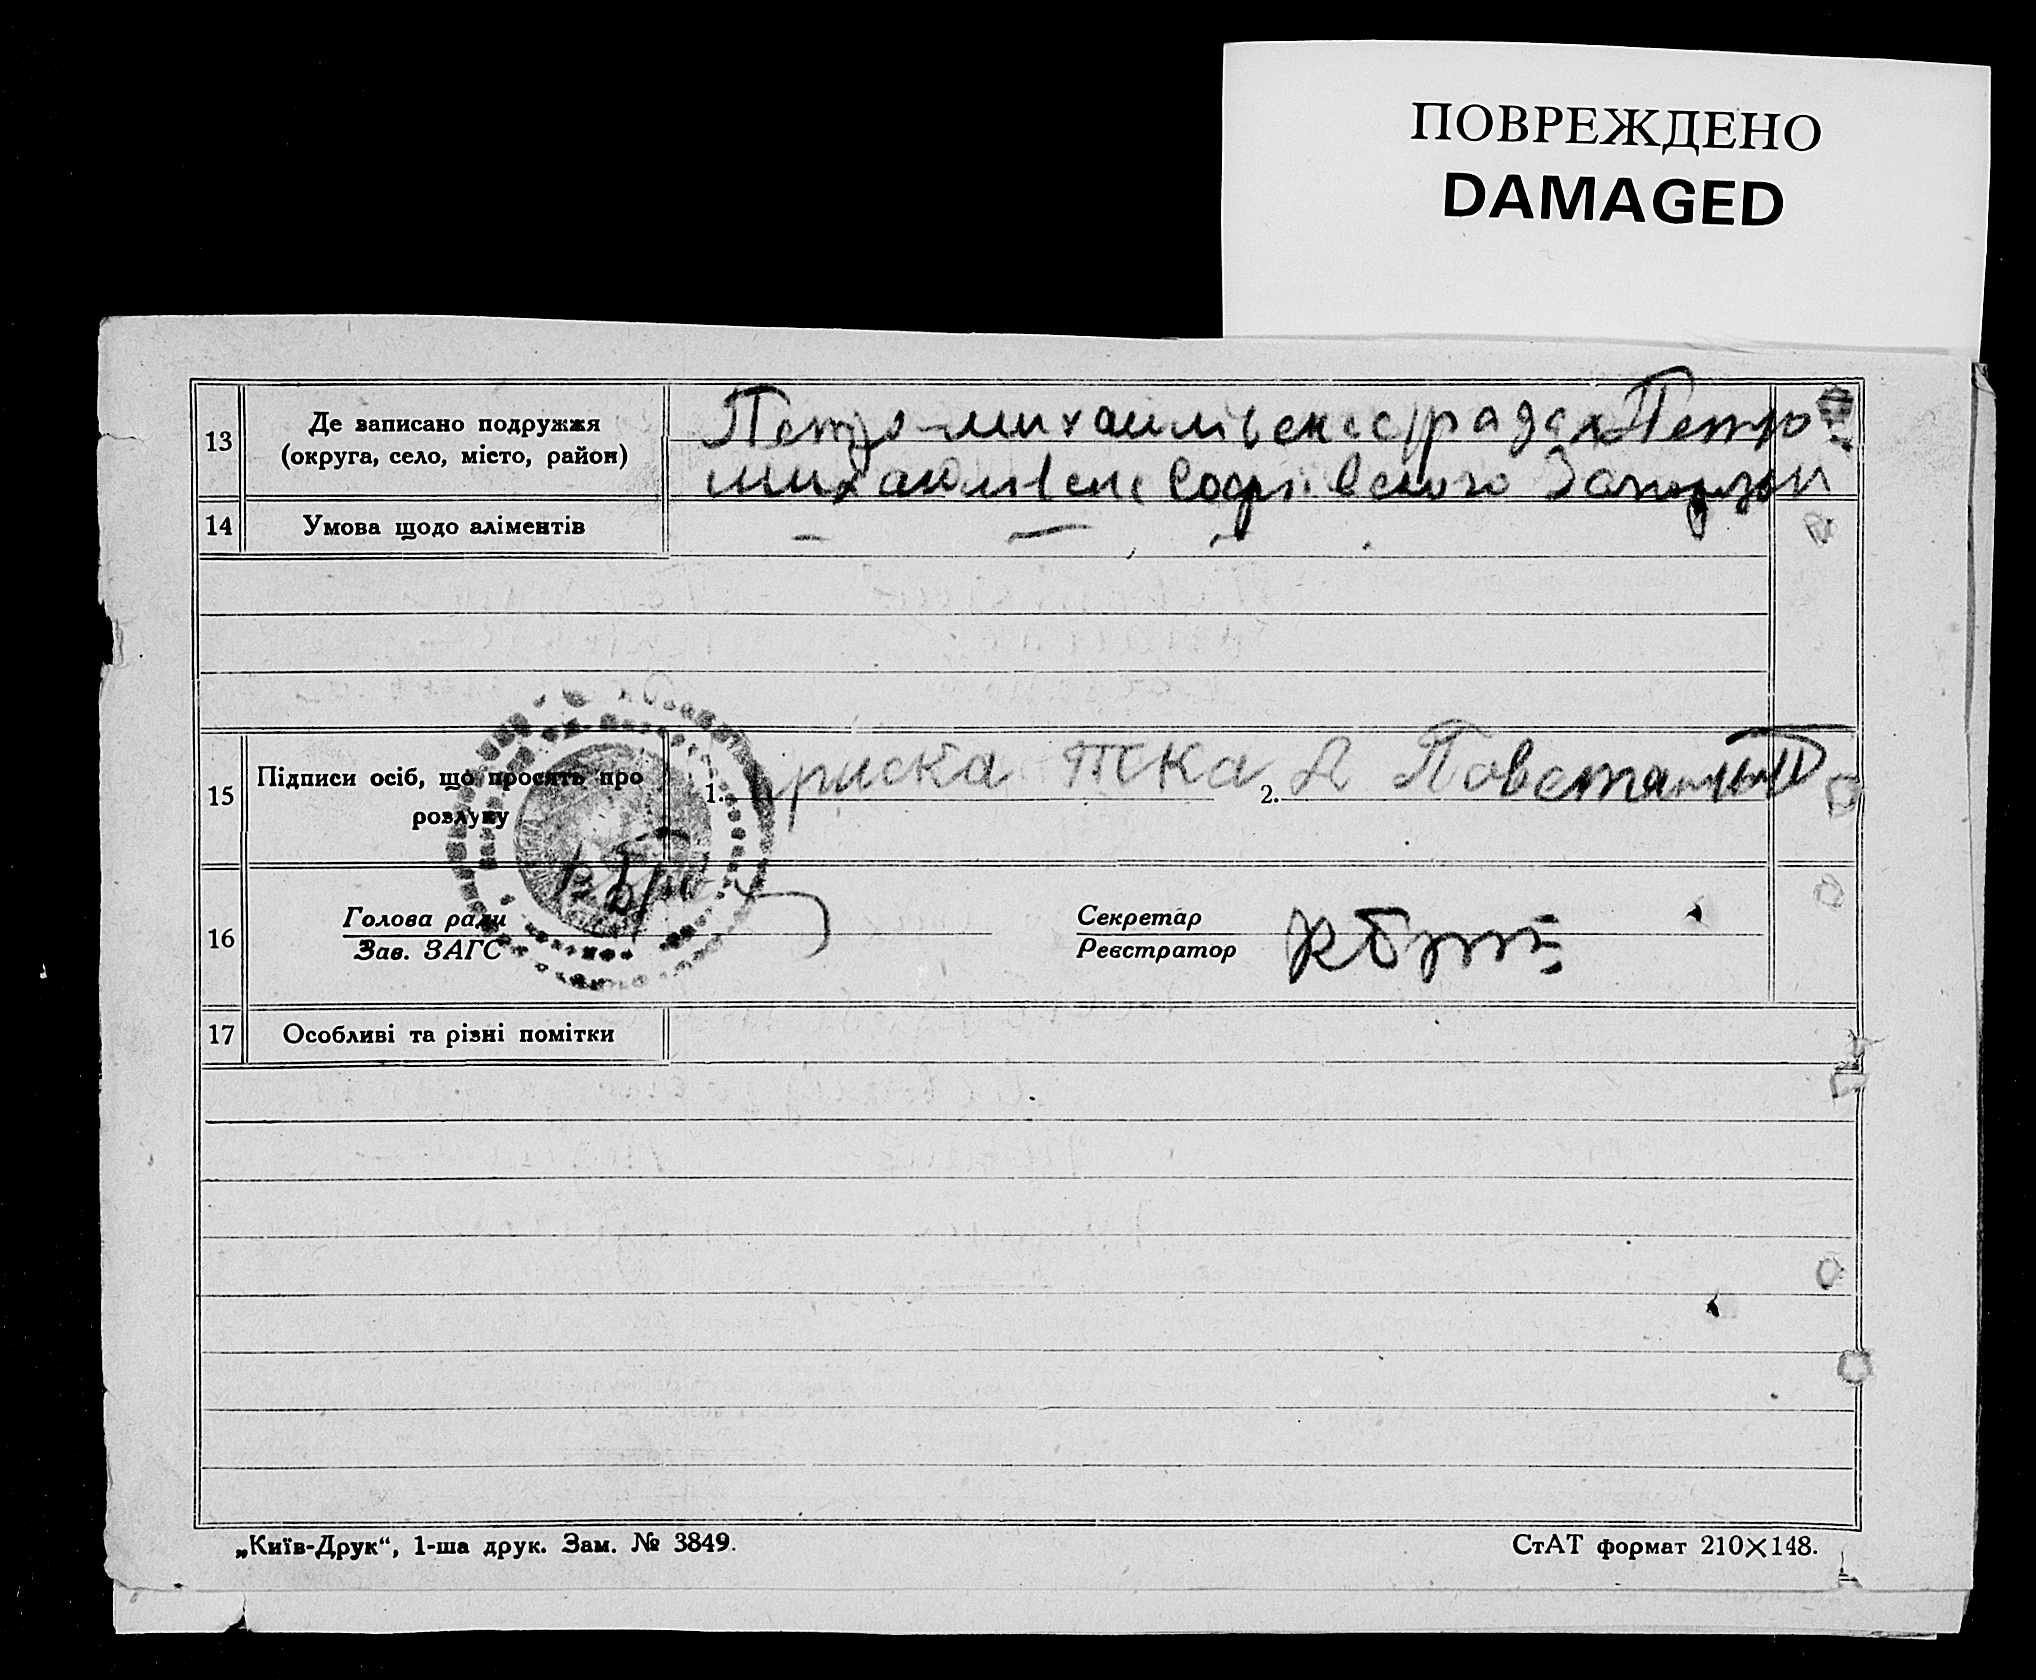 ПОВРЕЖДЕНО
DAMAGED
13
Де записано подружжя
(округа, село, місто, район)
Петро-михаилівск с/рада Петро
михаилівск Софіївского Запорізьк
14
Умова щодо аліментів
— — —
15
Підписи осіб, що просять про
розлуку
1.
2.
16
Голова ради
Зав. ЗАГС
Секретар
Реєстратор
17
Особливі та різні помітки
„Київ-Друк“, 1-ша друк. Зам. № 3849.
СтАТ формат 210×148.